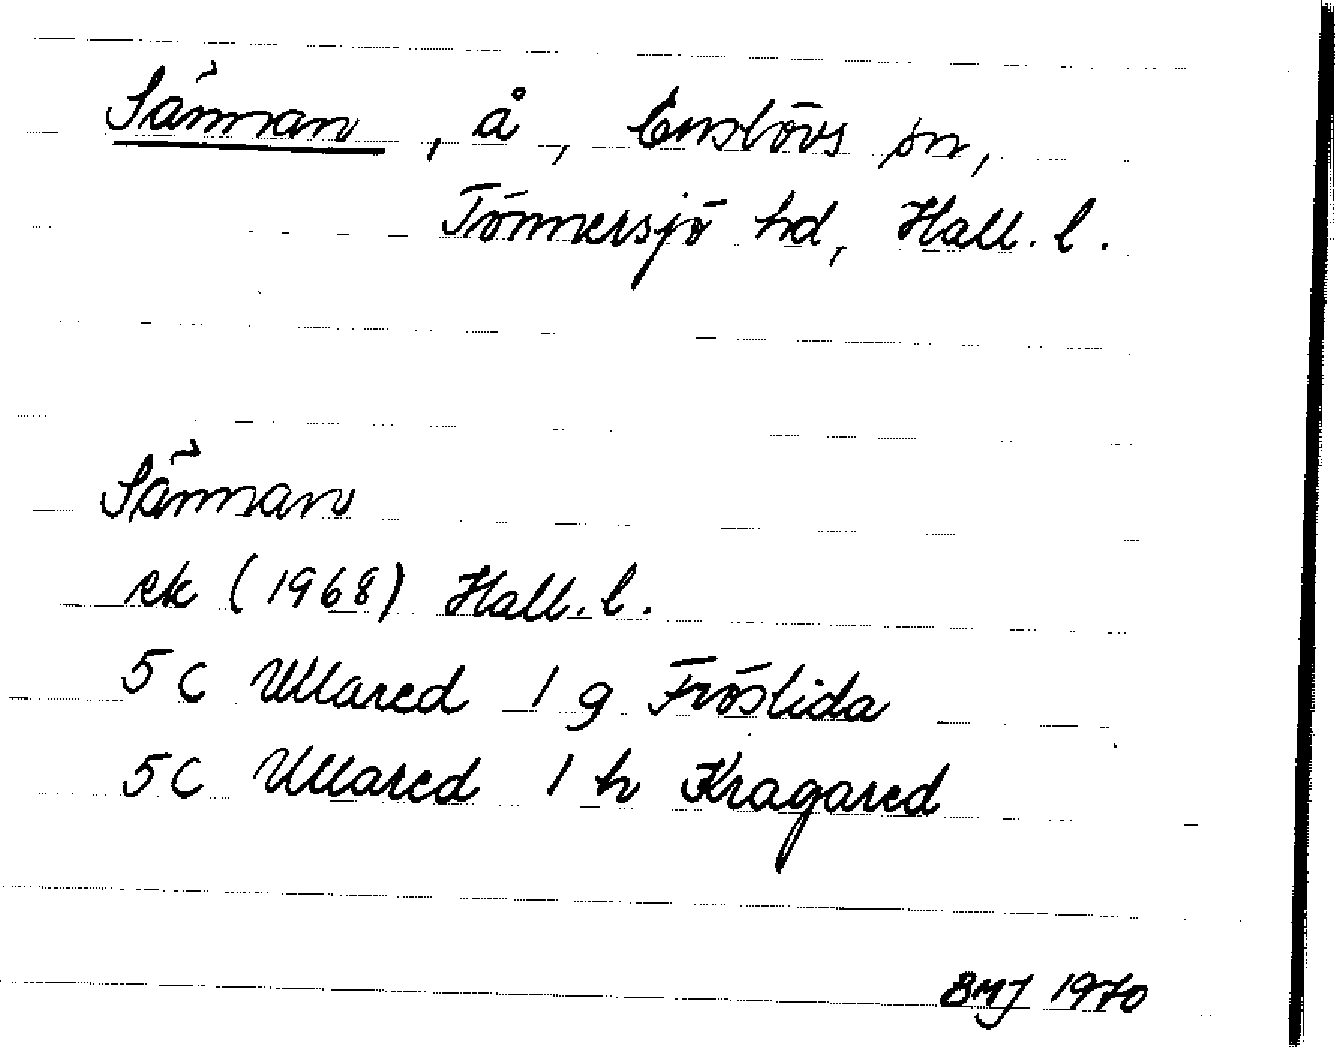 Sännan, å, Enslövs sn,
Tönnersjö hd, Hall. l.
Sännan
ek (1968) Hall. l.
5C Ullared 1 g Fröslida
5C Ullared 1 h Kragared
BMJ 1970